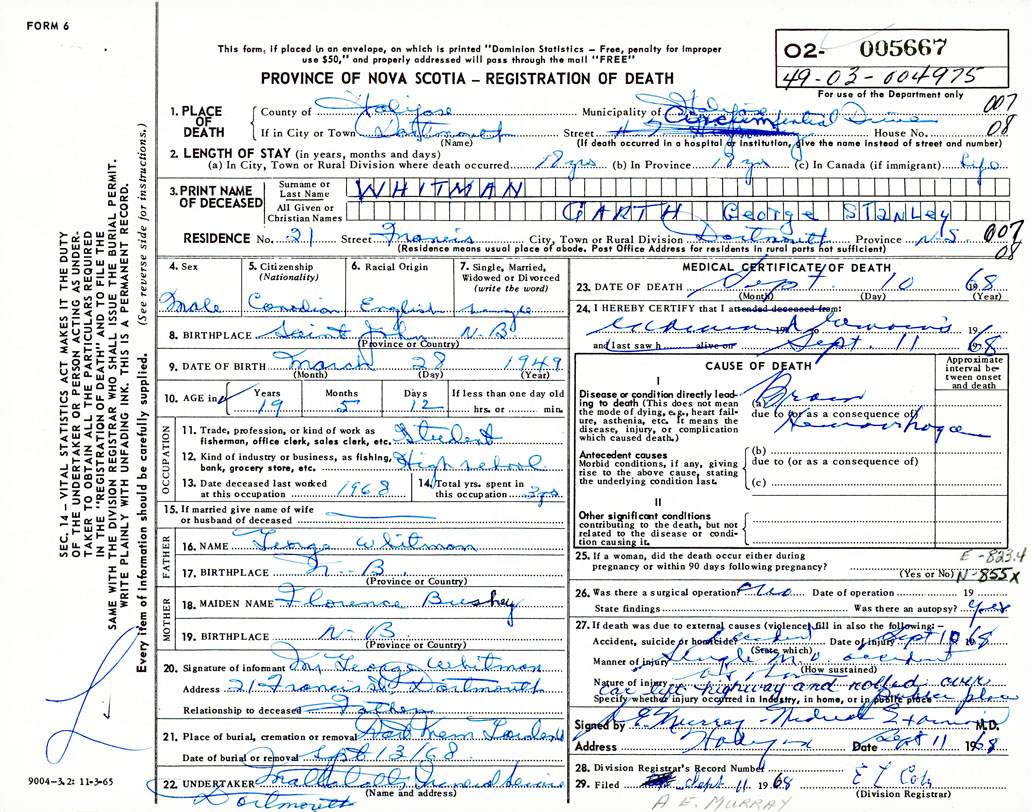 FORM 6
This form, if placed in an envelope, on which is printed "Dominion Statistics – Free, penalty for improper
use $50," and properly addressed will pass through the mail "FREE"
PROVINCE OF NOVA SCOTIA – REGISTRATION OF DEATH
02- 005667
49-03-004975
For use of the Department only
007
08
1. PLACE OF DEATH
County of Halifax Municipality of Halifax
Circumferential Drive
If in City or Town Dartmouth Street House No.
(Name) (If death occurred in a hospital or institution, give the name instead of street and number)
2. LENGTH OF STAY (in years, months and days)
(a) In City, Town or Rural Division where death occurred 18 yrs (b) In Province 18 yrs (c) In Canada (if immigrant) Life
3. PRINT NAME OF DECEASED
Surname or Last Name WHITMAN
All Given or Christian Names GARTH George STANLey
RESIDENCE No. 21 Street Francis City, Town or Rural Division Dartmouth Province N.S 007
08
(Residence means usual place of abode. Post Office Address for residents in rural ports not sufficient)
4. Sex
Male
5. Citizenship
(Nationality)
Canadian
6. Racial Origin
English
7. Single, Married,
Widowed or Divorced
(write the word)
single
8. BIRTHPLACE Saint John N-B.
(Province or Country)
9. DATE OF BIRTH March 28 1949
(Month) (Day) (Year)
10. AGE in Years Months Days If less than one day old
19 5 12 hrs. or min.
OCCUPATION
11. Trade, profession, or kind of work as
fisherman, office clerk, sales clerk, etc. Student
12. Kind of industry or business, as fishing,
bank, grocery store, etc. High school
13. Date deceased last worked
at this occupation 1968
14. Total yrs. spent in
this occupation 3 yrs
15. If married give name of wife
or husband of deceased
FATHER
16. NAME George Whitman
17. BIRTHPLACE N-B.
(Province or Country)
MOTHER
18. MAIDEN NAME Florence Bushey
19. BIRTHPLACE N-B.
(Province or Country)
20. Signature of informant Mr George Whitman
Address 21 Francis St Dartmouth
Relationship to deceased Father
21. Place of burial, cremation or removal
Date of burial or removal Sept 13/68
22. UNDERTAKER Funeral Service
(Name and address)
Dartmouth
MEDICAL CERTIFICATE OF DEATH
23. DATE OF DEATH Sept. 10 1968
(Month) (Day) (Year)
24. I HEREBY CERTIFY that I attended deceased from:
19
and last saw h alive on Sept. 11 1968
CAUSE OF DEATH
Approximate
interval be-
tween onset
and death
I
Disease or condition directly lead-
ing to death (This does not mean
the mode of dying, e.g., heart fail-
ure, asthenia, etc. It means the
disease, injury, or complication
which caused death.)
(a) Brain
due to (or as a consequence of)
Hemorrhage
Antecedent causes
Morbid conditions, if any, giving
rise to the above cause, stating
the underlying condition last.
(b)
due to (or as a consequence of)
(c)
II
Other significant conditions
contributing to the death, but not
related to the disease or condi-
tion causing it.
25. If a woman, did the death occur either during
pregnancy or within 90 days following pregnancy?
(Yes or No)
E-823.4
N-855X
26. Was there a surgical operation? No Date of operation 19
State findings Was there an autopsy? Yes
27. If death was due to external causes (violence) fill in also the following:–
Accident, suicide or homicide? accident Date of injury Sept 10 1968
(State which)
Manner of injury Single M.V. accident
(How sustained)
Nature of injury
car left highway and rolled over
Specify whether injury occurred in industry, in home, or in public place
Signed by A E Murray - Medical Examiner M.D.
Address Halifax Date Sept 11 1968
28. Division Registrar's Record Number
29. Filed Sept 11 1968
(Division Registrar)
A. E. MURRAY
SEC. 14 – VITAL STATISTICS ACT MAKES IT THE DUTY
OF THE UNDERTAKER OR PERSON ACTING AS UNDER-
TAKER TO OBTAIN ALL THE PARTICULARS REQUIRED
IN THE "REGISTRATION OF DEATH" AND TO FILE THE
SAME WITH THE DIVISION REGISTRAR WHO SHALL ISSUE THE BURIAL PERMIT.
WRITE PLAINLY WITH UNFADING INK. THIS IS A PERMANENT RECORD.
Every item of information should be carefully supplied. (See reverse side for instructions.)
9004-3.2: 11-3-65